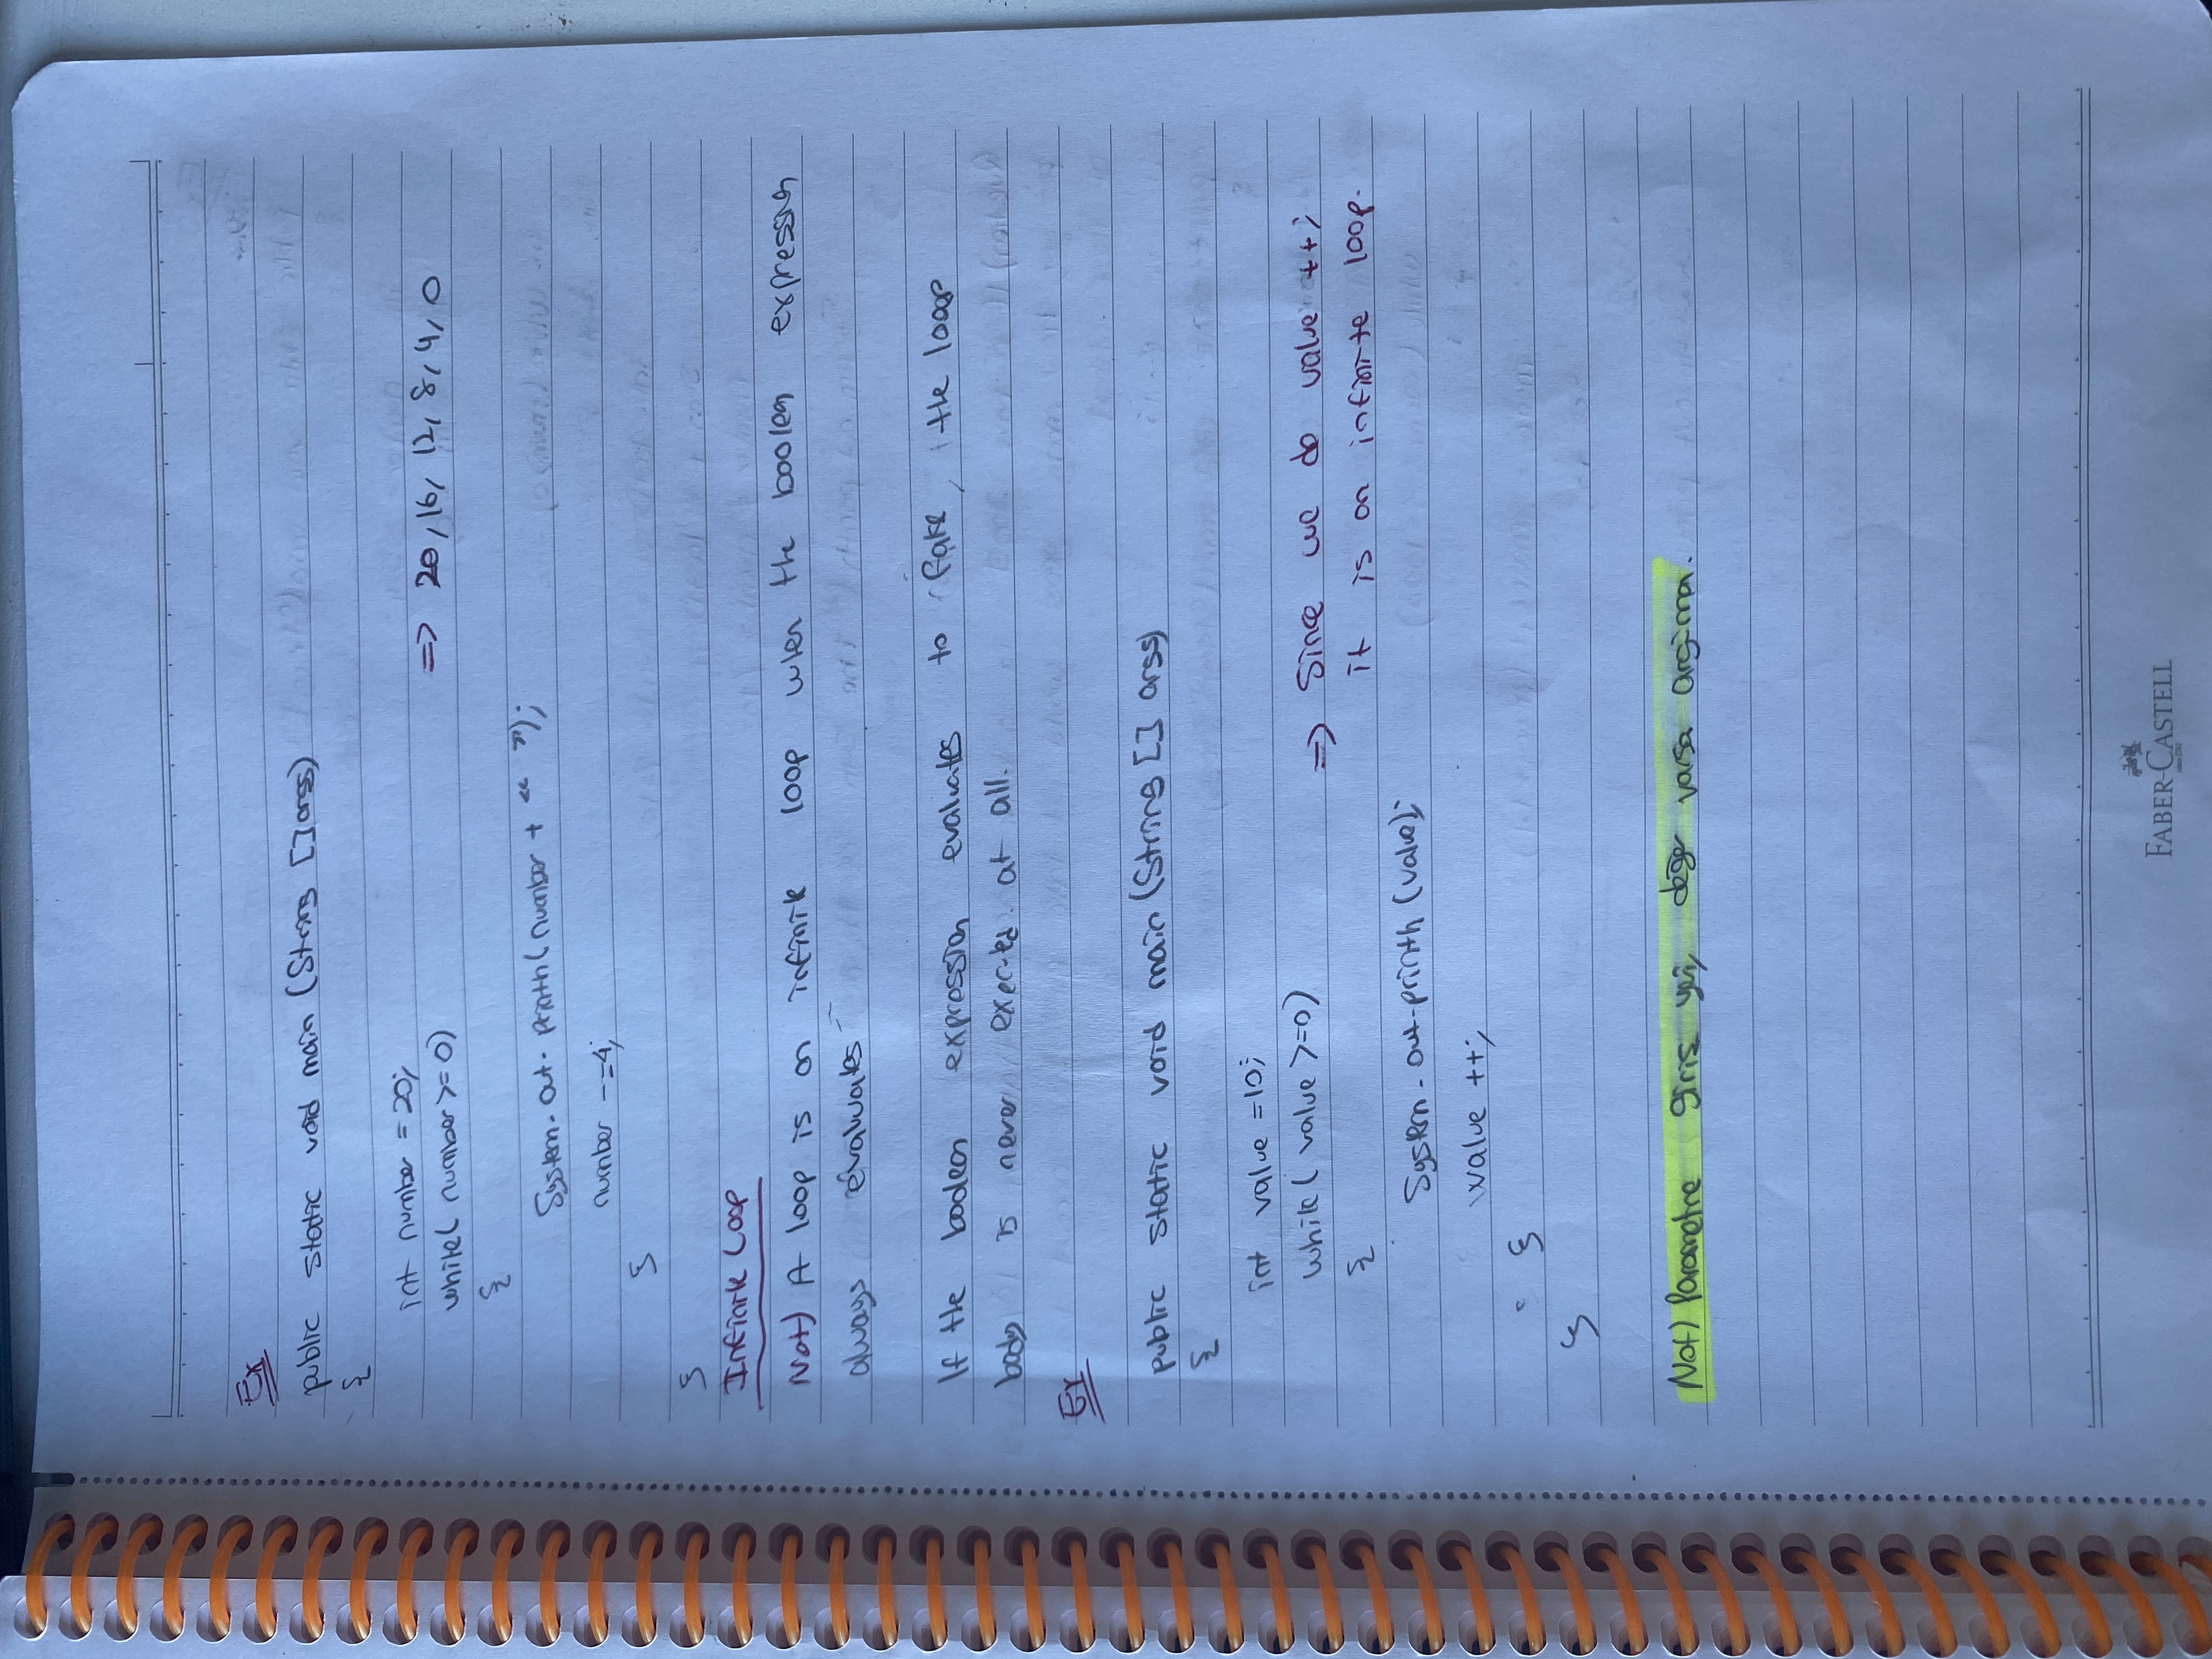 Ex
public static void main (String []args)
{
int number = 20;
while( number >= 0)
=> 20, 16, 12, 8, 4, 0
{
System.out.println(number + “ ”);
number -=4;
}
}
Infinite Loop
Not) A loop is an infinite loop when the boolean expression
always evaluates
If the boolean expression evaluates to false, the looop
body is never executed at all.
Ex
public static void main (String [] args)
{
int value =10;
while( value >=0)
=> Since we do value ++;
it is an infinite loop.
{
System.out.println (value);
value ++;
}
}
Not) Parametre giriş yeri, değer varsa argüman.
FABER-CASTELL
since 1761